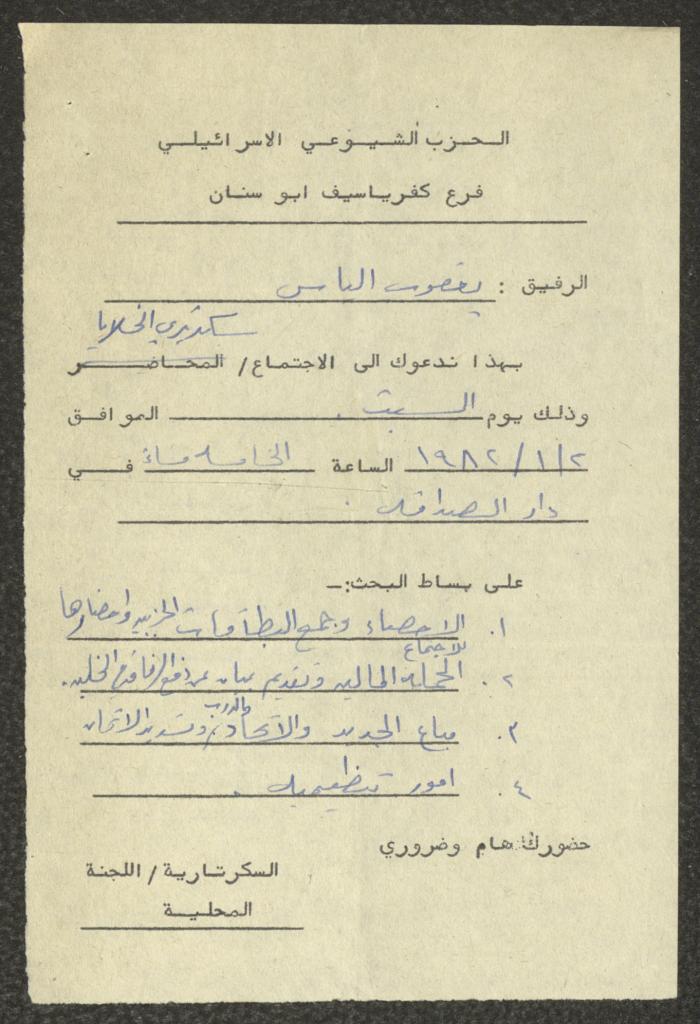 الحزب الشيوعي الاسرائيلي
فرع كفرياسيف ابو سنان
الرفيق : يعقوب الياس
سكرتيري الخلايا
بهذا ندعوك الى الاجتماع/ المحاضر
وذلك يوم السبت . الموافق
١٩٨٢/١/٢ الساعة الخامسة مساءً في
دار الصداقة .
على بساط البحث:ـ
١. الاحصاء وجمع البطاقات الحزبية واحضارها
للاجتماع
٢. الحملة المالية وتقديم بيان عن دفع الرفاق في الخلية.
والدرب
٣. مباع الجديد والاتحاد وتسديد الاثمان
٤. امور تنظيمية .
حضورك هام وضروري
السكرتارية/اللجنة
المحلية